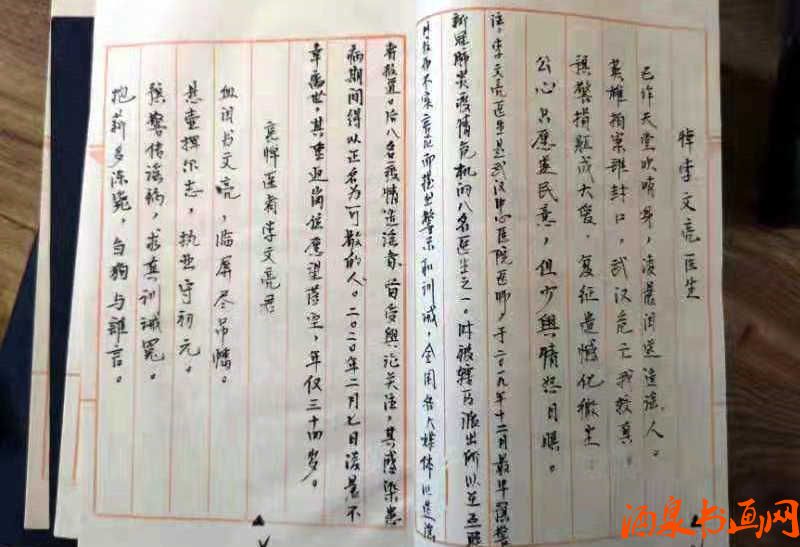 悼李文亮医生
已作天堂吹哨身，凌晨闭逆造谣人。
英雄拍案难封口，武汉危亡我较真。
预警捐躯成大爱，复征遗憾化微尘。
公心只应连民意，但少舆情怒目瞋。
注：李文亮医生是武汉中心医院医师，于二〇一九年十二月最早预警
新冠肺炎疫情危机的八名医生之一。时被辖区派出所以
而提出警示和训诫，全国各大媒体以造谣
者报道。后八名疫情造谣者，首受舆论关注，其感染患
病期间得以正名为可敬的人。二〇二〇年二月七日凌晨不
幸离世，其重返岗位愿望落空，年仅三十四岁。
哀悼医者李文亮君
血闭书文亮，临屏尽吊幡。
悬壶挥尔志，执业守初元。
预警传谣病，求真训诫冤。
抱薪多冻毙，刍狗与谁言。
酒泉书画网